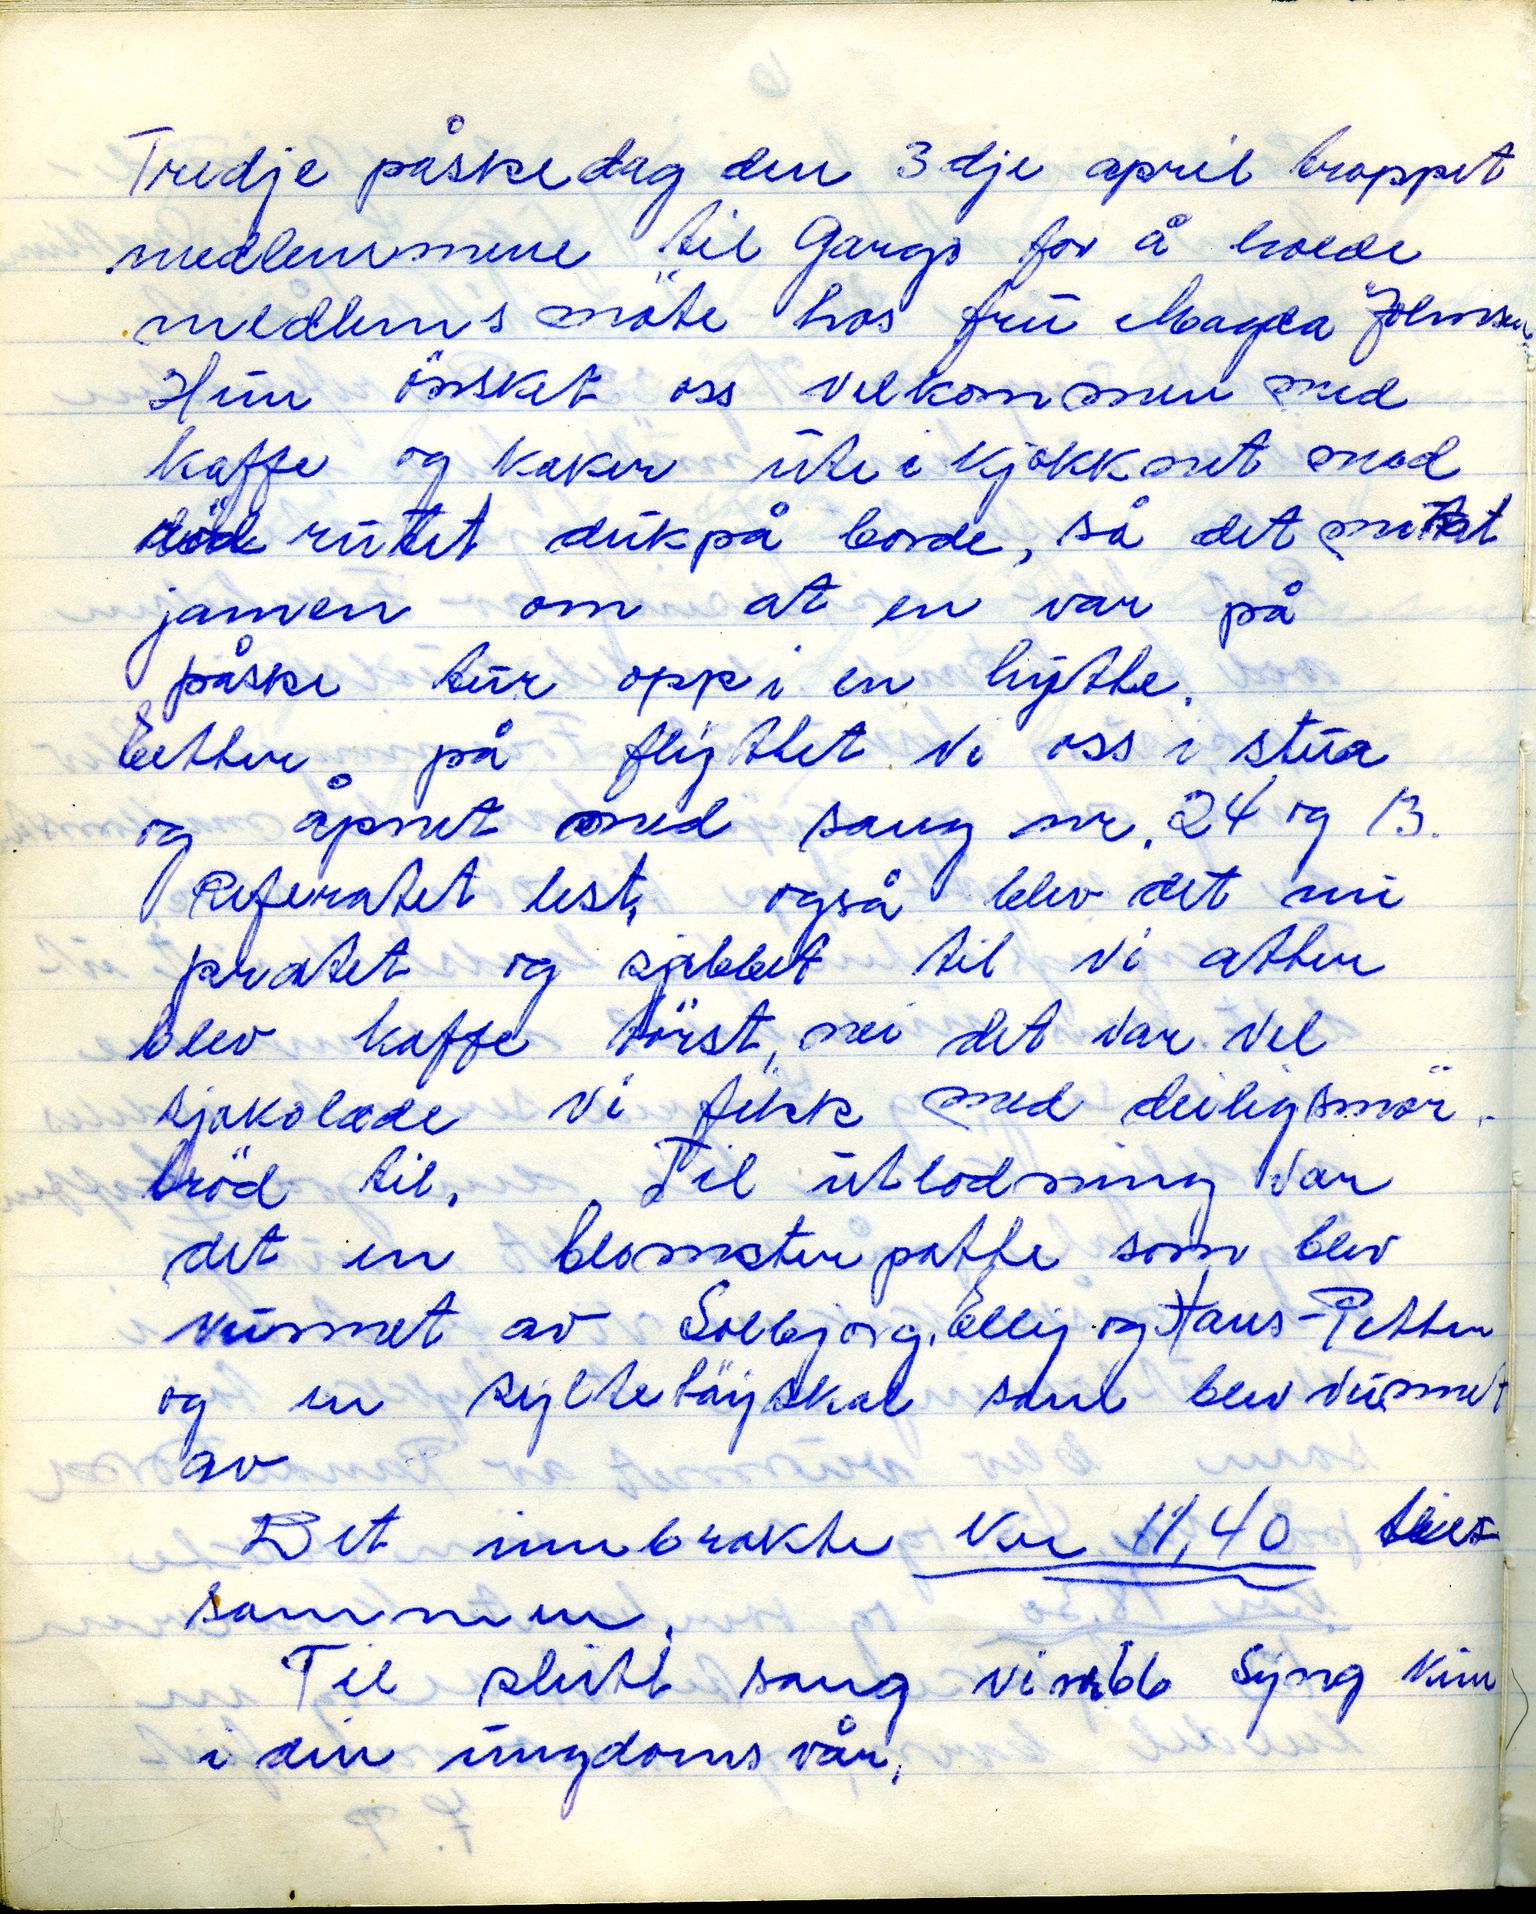 Tredje påskedag den 3dje april troppet
medlemmene til Gargo for å holde
medlemsmöte hos frü Magda Johnsen.
Hün önsket oss velkommen med
kaffe og kaker üte i kjökknet med
röd rütet dük på borde, så det
jamen om at en var på
påske tür opp i en hytte.
Etter på flyttet vi oss i stüa
og åpnet med sang nr. 24 og 13.
Referatet lest, også blev det nü
pratet og sjabbet til vi atter
blev kaffe törst, nei det var vel
sjokolade vi fikk med deilig smör-
bröd til. Til ütlodning var
det en blomsterpotte som blev
vünnet av Solbjorg, Elly og Hans-Petter
og en syltetöyskål som blev vünnet
av
Det innbrakte Kr 11,40 til
sammen.
Til slütt sang vi nr 66 Syng kün
i din üngdoms vår.